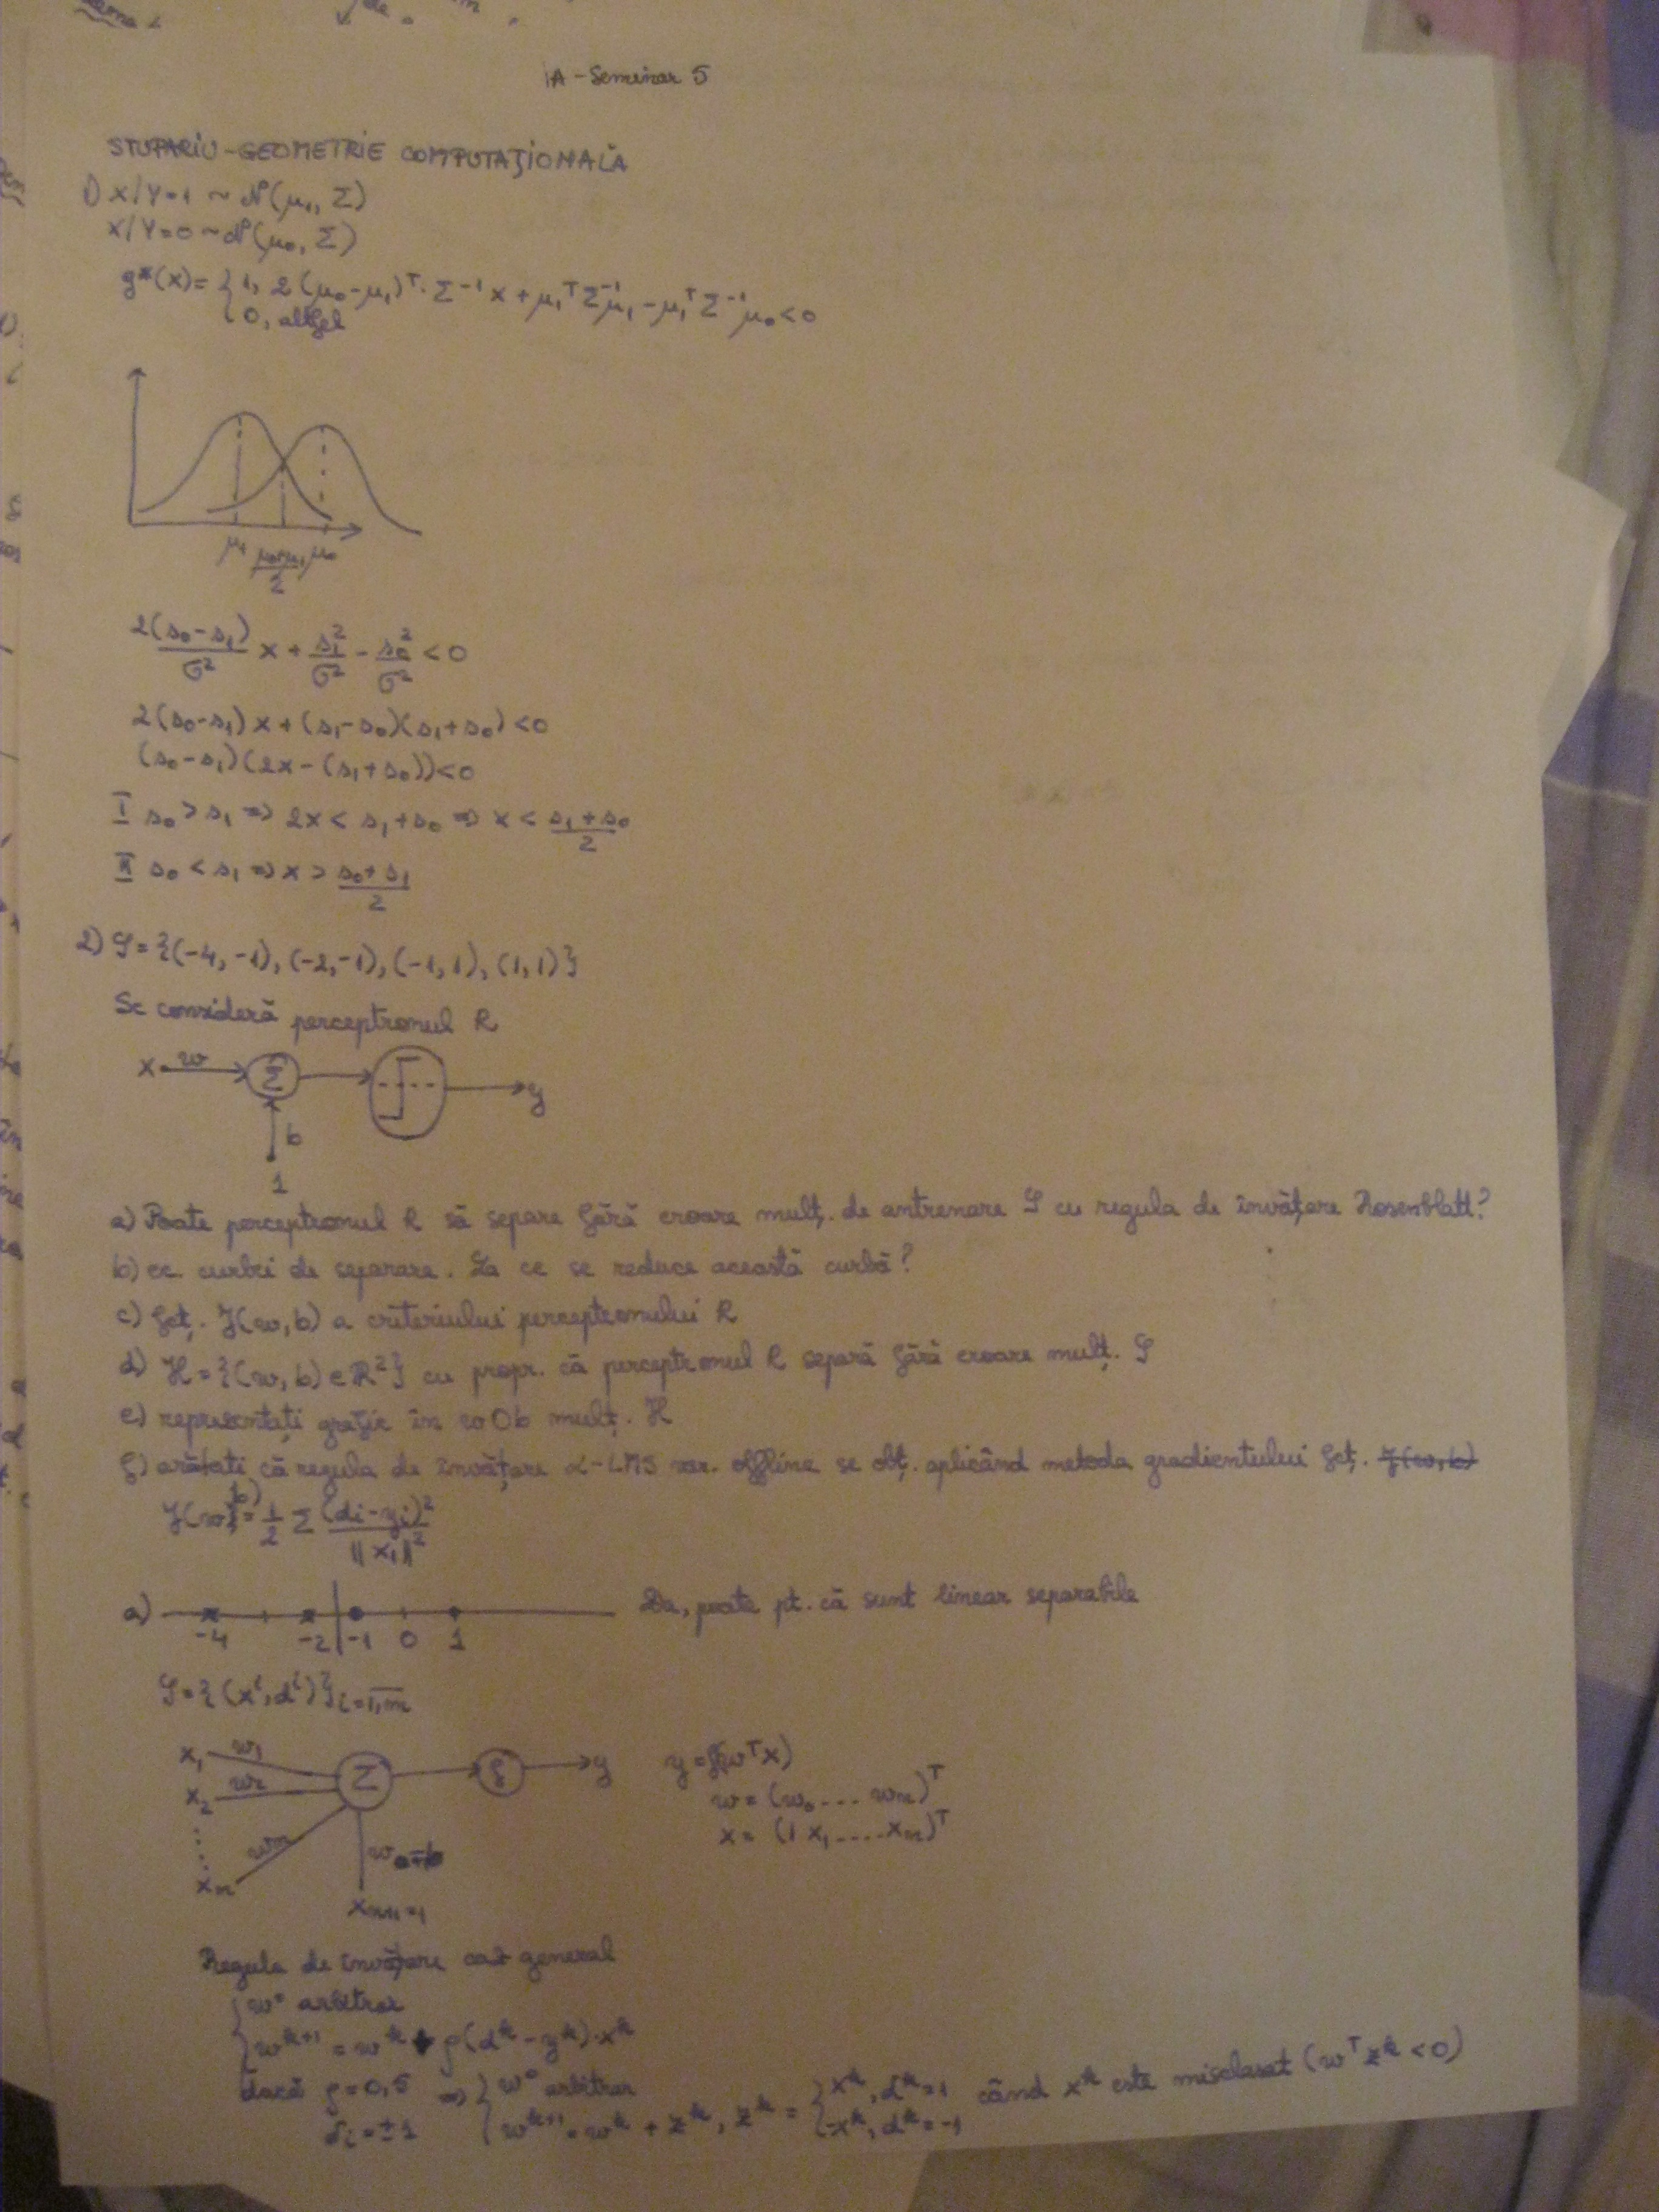 IA - Seminar 5
STUPARIU - GEOMETRIE COMPUTAŢIONALĂ
1) X/Y=1 ~ N(μ₁, Σ)
X/Y=0 ~ N(μ₀, Σ)
g*(x) = { 1, 2(μ₀-μ₁)ᵀ·Σ⁻¹x + μ₁ᵀΣ⁻¹μ₁ - μ₁ᵀΣ⁻¹μ₀ < 0
0, altfel
μ₁ (μ₀+μ₁)/2 μ₀
2(s₀-s₁)/σ² x + s₁²/σ² - s₀²/σ² < 0
2(s₀-s₁)x + (s₁-s₀)(s₁+s₀) < 0
(s₀-s₁)(2x-(s₁+s₀)) < 0
I s₀ > s₁ => 2x < s₁+s₀ => x < (s₁+s₀)/2
II s₀ < s₁ => x > (s₀+s₁)/2
2) S = {(-4,-1), (-2,-1), (-1,1), (1,1)}
Se consideră perceptronul R
x w Σ y
b
1
a) Poate perceptronul R să separe fără eroare mulţ. de antrenare S cu regula de învăţare Rosenblatt?
b) ec. curbei de separare. La ce se reduce această curbă?
c) fcţ. J(w,b) a criteriului perceptronului R
d) H = {(w,b) ∈ R²} cu propr. că perceptronul R separă fără eroare mulţ. S
e) reprezentaţi grafic în wOb mulţ. H
f) arătati că regula de învăţare α-LMS var. offline se obţ. aplicând metoda gradientului fcţ. J(w,b)
J(w,b) = 1/2 Σ (di-yi)²/||xi||²
a) -4 -2 -1 0 1 Da, poate pt. că sunt linear separabile
S = {(xⁱ, dⁱ)} i=1,m
x₁ w₁ Σ f y y = f(wᵀx)
x₂ w₂ w = (w₀ .... wₙ)ᵀ
x = (1 x₁ .... xₙ)ᵀ
wₙ w₀=b
xₙ
xₙ₊₁=1
Regula de învăţare caz general
{ w⁰ arbitrar
wᵏ⁺¹ = wᵏ + ρ(dᵏ-yᵏ)·xᵏ
dacă ρ=0,5 => { w⁰ arbitrar
di=±1 wᵏ⁺¹ = wᵏ + zᵏ, zᵏ = { xᵏ, dᵏ=1 când xᵏ este misclasat (wᵀzᵏ < 0)
-xᵏ, dᵏ=-1